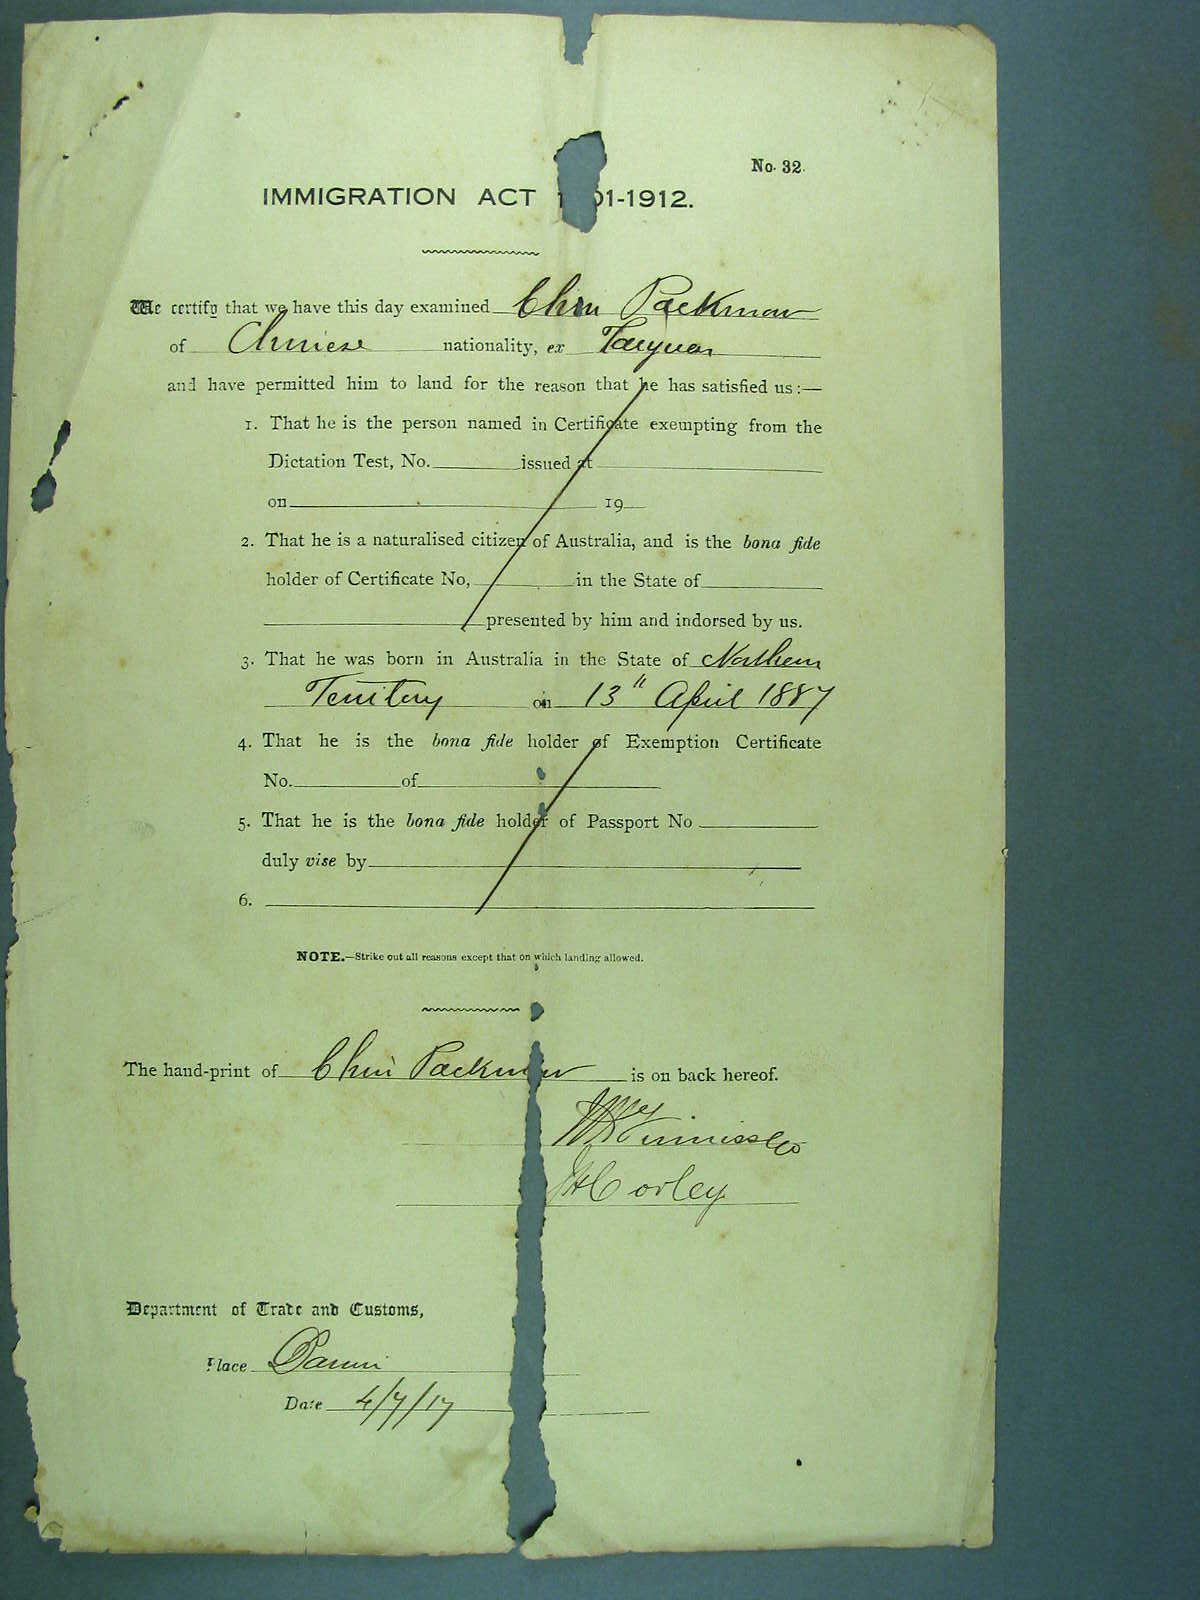 No. 32.
IMMIGRATION ACT 1 01-1912.
We certify that we have this day examined Chin Packmow
of Chinese nationality, ex Taiyuan
and have permitted him to land for the reason that he has satisfied us:—
1. That he is the person named in Certificate exempting from the
Dictation Test, No. issued at
on 19
2. That he is a naturalised citizen of Australia, and is the bona fide
holder of Certificate No, in the State of
presented by him and indorsed by us.
3. That he was born in Australia in the State of Northern
Territory on 13" April 1887
4. That he is the bona fide holder of Exemption Certificate
No. of
5. That he is the bona fide holder of Passport No
duly vise by
6.
NOTE.—Strike out all reasons except that on which landing allowed.
The hand-print of Chin Packmow is on back hereof.
JHCorley
Department of Trade and Customs,
Place Darwin
Date 4/7/17